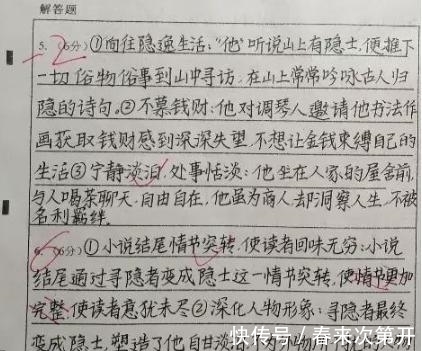 解答题
5. (6分)①向往隐逸生活:"他"听说山上有隐士,便推下
-2
一切俗物俗事到山中寻访,在山上常常吟咏古人归
隐的诗句。②不慕钱财:他对调琴人邀请他书法作
画获取钱财感到深深失望,不想让金钱束缚自己的
生活③宁静淡泊,处事恬淡:他坐在人家的屋舍前,
与人喝茶聊天,自由自在,他虽为商人却洞察人生,不被
名利羁绊。
6. (6分)①小说结尾情节突转,使读者回味无穷:小说
结尾通过寻隐者变成隐士这一情节突转,使情节更加
完整,使读者意犹未尽②深化人物形象:寻隐者最终
变成隐士,塑造了他自甘淡泊
快传号/春来次第开